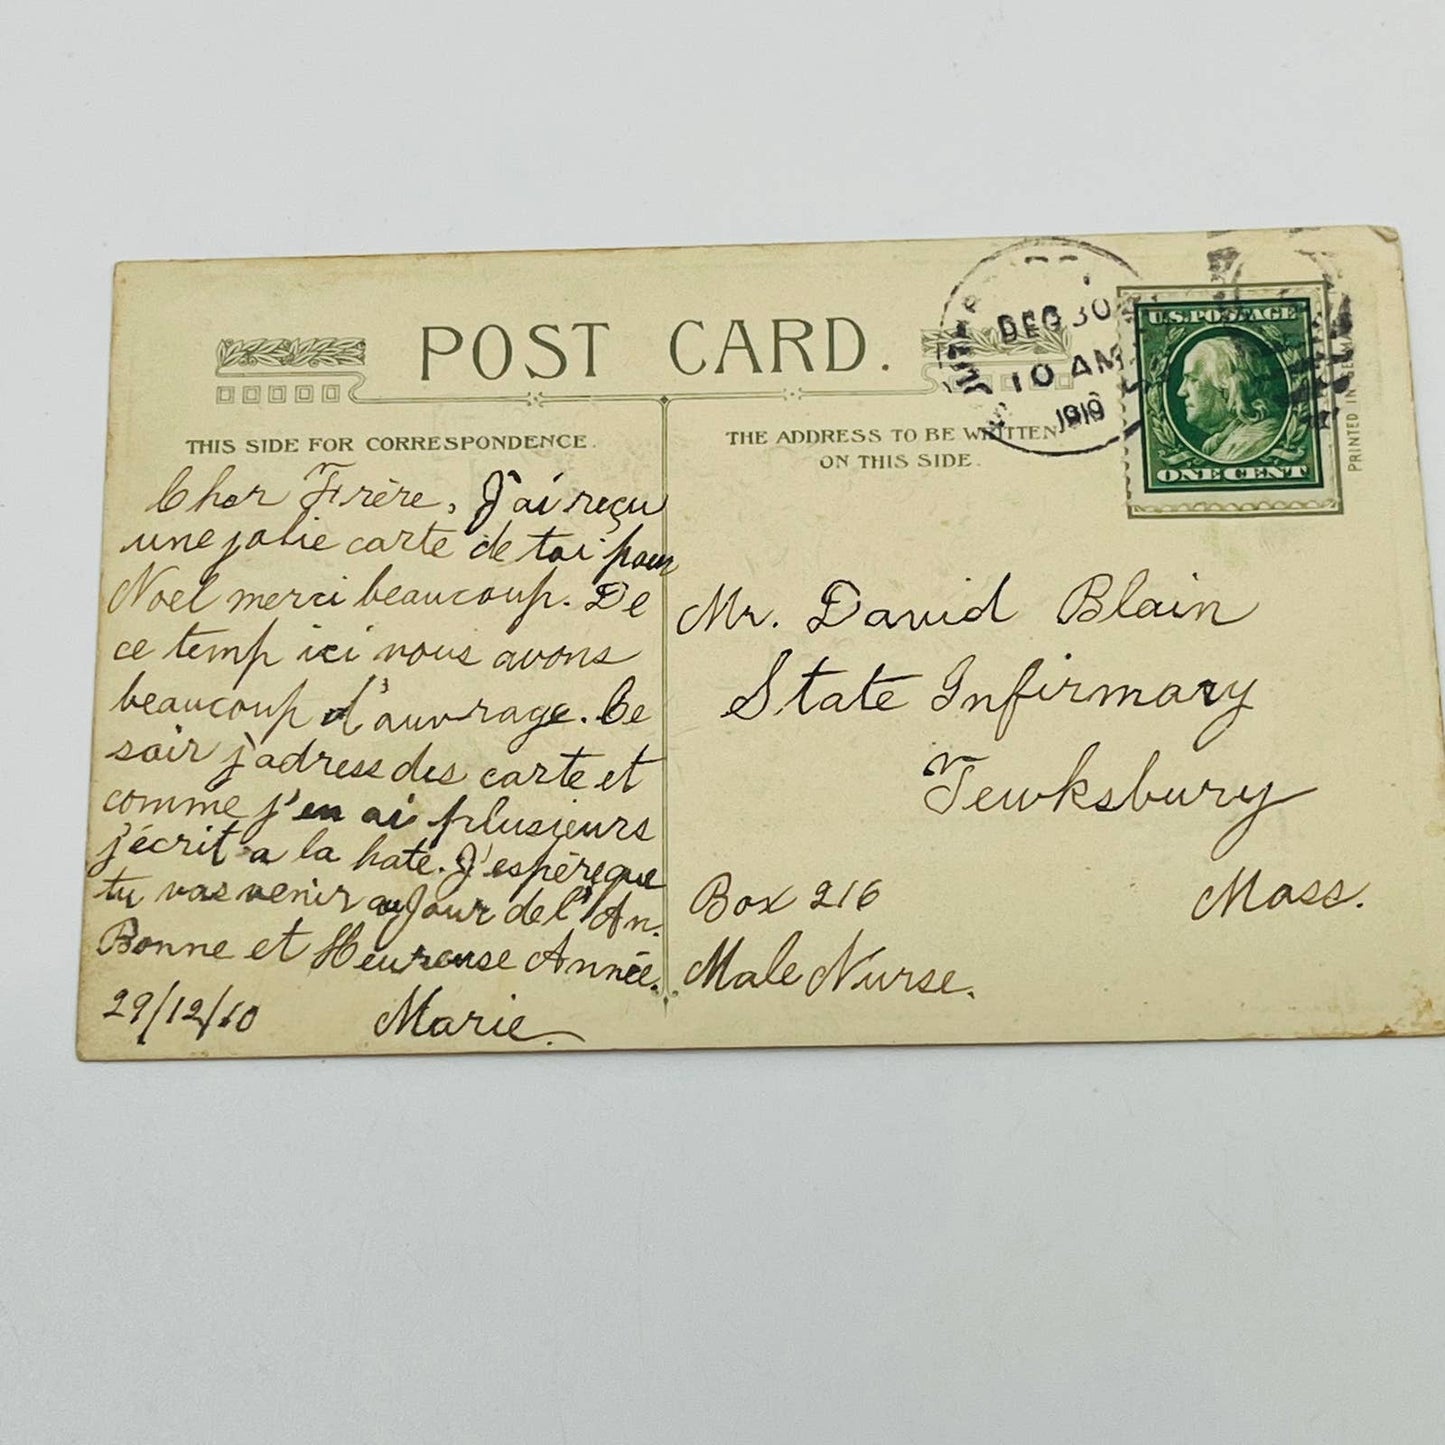 POST CARD.
THIS SIDE FOR CORRESPONDENCE.
Cher Frère, J'ai reçu
une jolie carte de toi pour
Noel merci beaucoup. De
ce temp ici nous avons
beaucoup d'ouvrage. Ce
soir j'adress des carte et
comme j'en ai plusieurs
j'écrit a la hate. J'espère que
tu vas venir au Jour de l'An.
Bonne et Heureuse Année.
29/12/10 Marie.
THE ADDRESS TO BE WRITTEN
ON THIS SIDE.
DEC 30
10 AM
1910
U.S. POSTAGE
ONE CENT
PRINTED IN
Mr. David Blain
State Infirmary
Tewksbury
Mass.
Box 216
Male Nurse.